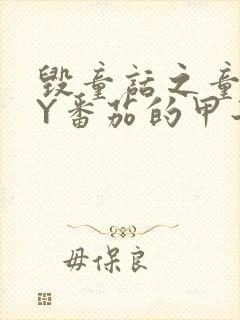 毁童话之童
Y番茄的甲
毋保良